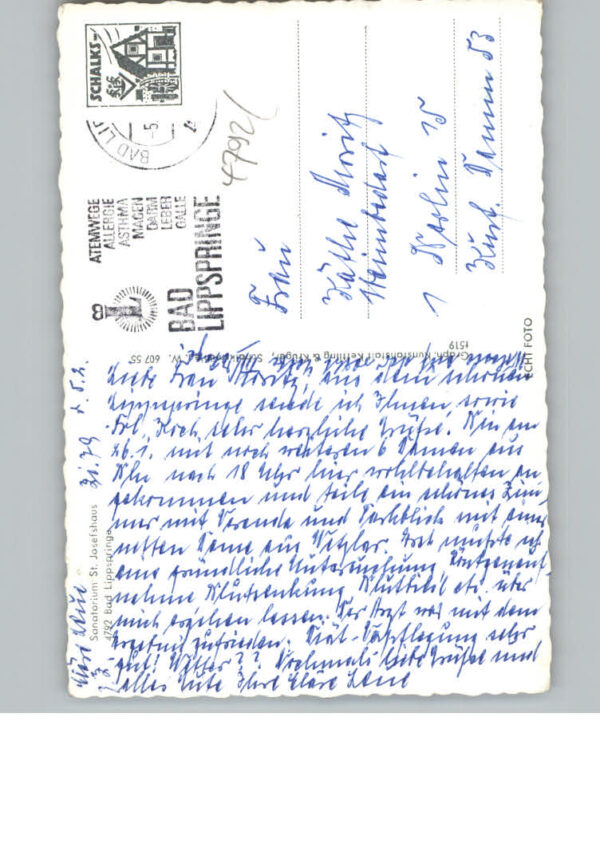 SCHALKS-
BAD LIP
-5.
ATEMWEGE
ALLERGIE
ASTHMA
MAGEN
DARM
LEBER
GALLE
8
L
BAD
LIPPSPRINGE
4792
Frau
Käthe Moritz
1 Berlin
Kurf. Damm 53
Graph. Kunstanstalt Kettling & Krüger, W. 607 55
1519
ECHT FOTO
Sanatorium St. Josefshaus
4792 Bad Lippspringe
Zi. 79 d. 5. 2.
Liebe Frau Moritz, aus dem schönen
Lippspringe sende ich Ihnen, sowie
Frl. Koch, sehr herzliche Grüße. Bin am
26. 1. mit noch weiteren 6 Damen aus
Bln nach 18 Uhr hier wohlbehalten an-
gekommen und teile ein schönes Zim-
mer mit Veranda und Parkblick mit einer
netten Dame aus Wetzlar. Erst mußte ich
eine gründliche Untersuchung, Röntgenauf-
nahme Blutsenkung, Blutbild etc. über
mich ergehen lassen. Der Arzt war mit dem
Ergebnis zufrieden. Diät-Verpflegung sehr
gut! Wetter?? Nochmals liebe Grüße und
alles Gute Ihre Klara